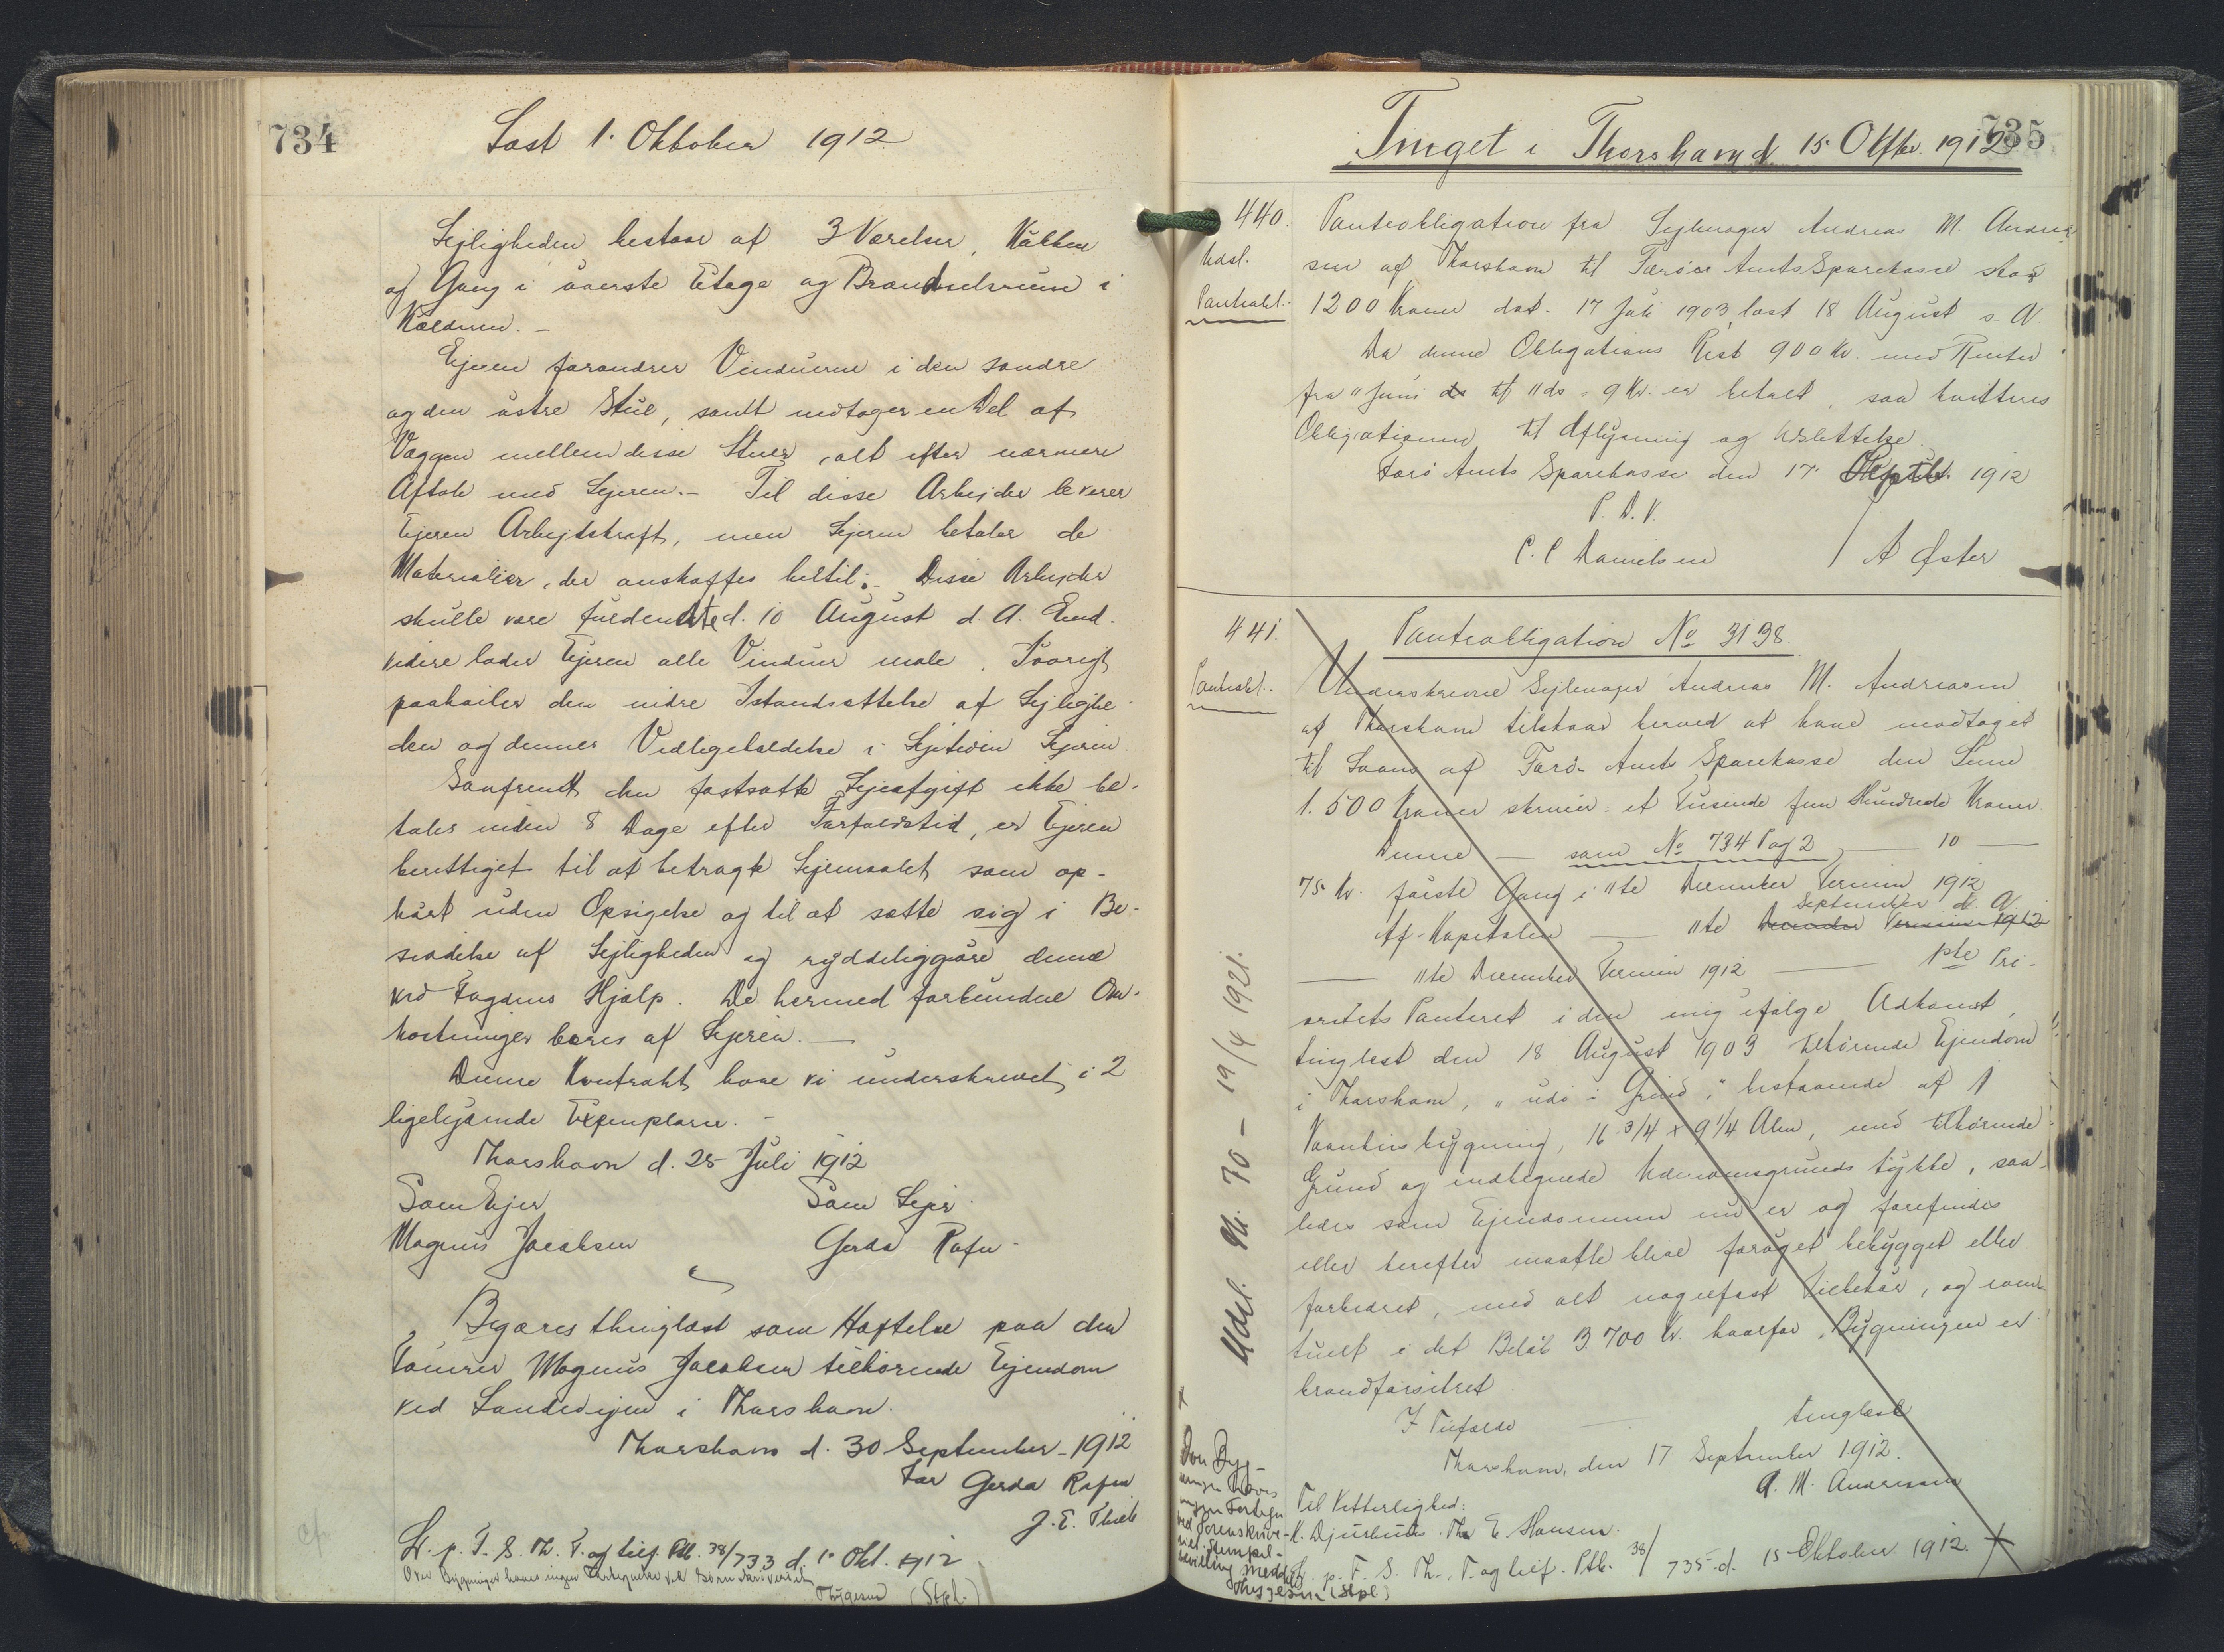 734
Læst 1. Oktober 1912
Lejligheden bestaar af 3 Værelser, Køkken
og Gang i øverste Etage og Brændselsrum i
Kælderen. -
Ejeren forandrer Vinduerne i den søndre
og den østre Stue, samt nedtager en Del af
Væggen mellem disse Stuer, alt efter nærmere
Aftale med Lejeren. - Til disse Arbejder leverer
Ejeren Arbejdskraft, men Lejeren betaler de
Materialier, der anskaffes hertil; - Disse Arbejder
skulle være fuldendte d. 10 August d. A. End-
videre lader Ejeren alle Vinduer male. Iøvrigt
paahviler den indre Istandsættelse af Lejlighe-
den og dennes Vedligeholdelse i Lejetiden Lejeren.
Saafremt den fastsatte Lejeafgift ikke be-
tales inden 8 Dage efter Forfaldstid, er Ejeren
berettiget til at betragte Lejemaalet som op-
hørt uden Opsigelse og til at sætte sig i Be-
siddelse af Lejligheden og ryddeliggøre denne
ved Fogdens Hjælp. De hermed forbundne Om-
kostninger bæres af Lejeren. -
Denne Kontrakt have vi underskrevet i 2
ligelydende Exemplarer. -
Thorshavn d. 25 Juli 1912
Som Ejer Som Lejer
Magnus Jacobsen Gerda Rafn
Begæres thinglæst som Hæftelse paa den
Tømrer Magnus Jacobsen tilhørende Ejendom
ved Landevejen i Thorshavn.
Thorshavn d. 30 September 1912
For Gerda Rafn
L. p. F. S. Th. T. og tilf. Ptb. 38/733 d. 1. Okt. 1912
Over Bygningen haves ingen Fortegnelse ved Sorenskriveriet
Thygesen (Stpl.)
735
Tinget i Thorshavn d. 15 Oktbr. 1912
440.
Udsl.
Panteobl.
Panteobligation fra Sejlmager Andreas M. Andrea-
sen af Thorshavn til Færøe Amts Sparekasse stor
1200 Kroner dat. 17 Juli 1903, læst 18 August s. A
Da denne Obligations Rest 900 Kr. med Renter
fra 11 Juni ds til 11 ds = 9 Kr. er betalt, saa kvitteres
Obligationen til Aflysning og Udslettelse.
Færø Amts Sparekasse den 17. Septbr. 1912
P. D. V.
C. C. Danielsen / A Øster
441.
Panteobl.
Panteobligation No 3138.
Underskrevne Sejlmager Andreas M. Andreasen
af Thorshavn tilstaar herved at have modtaget
til Laans af Færø Amts Sparekasse den Sum
1.500 Kroner skriver: et Tusinde fem Hundrede Kroner.
Denne - som No 734 Pag 2 - 10 -
75 Kr. første Gang i 11te December Termin 1912
September d. A.
Af Kapitalen - 11te December Termin 1912
- 11te December Termin 1912 - 1ste Pri-
oritets Panteret i den mig ifølge Adkomst,
tinglæst den 18 August 1903 tilhørende Ejendom
i Thorshavn, "uda i Grind," bestaaende af 1
Vaaningsbygning, 16 3/4 x 9 1/4 Alen, med tilhørende
Grund og indhegnede Udenomsgrunds stykke, saa-
ledes som Ejendommen nu er og forefindes
eller herefter maatte blive forøget bebygget eller
forbedret, med alt nagelfast Tilbehør, og even-
tuelt i det Beløb 3.700 Kr. hvorfor Bygningen er
brandforsikret
I Tilfælde - tinglæst
Thorshavn, den 17 September 1912.
A. M. Andreasen
Til Vitterlighed:
K. Djurhuus. Th. E. Hansen.
L. p. F. S. Th., T. og tilf. Ptb. 38/735 d. 15 Oktober 1912. x
Udsl. M. 70 - 19/4 1921.
x
Over Byg-
ningen haves
ingen Fortegn
ved Sorenskrive-
riet. Stempel-
bevilling meddelt
Thygesen (Stpl)